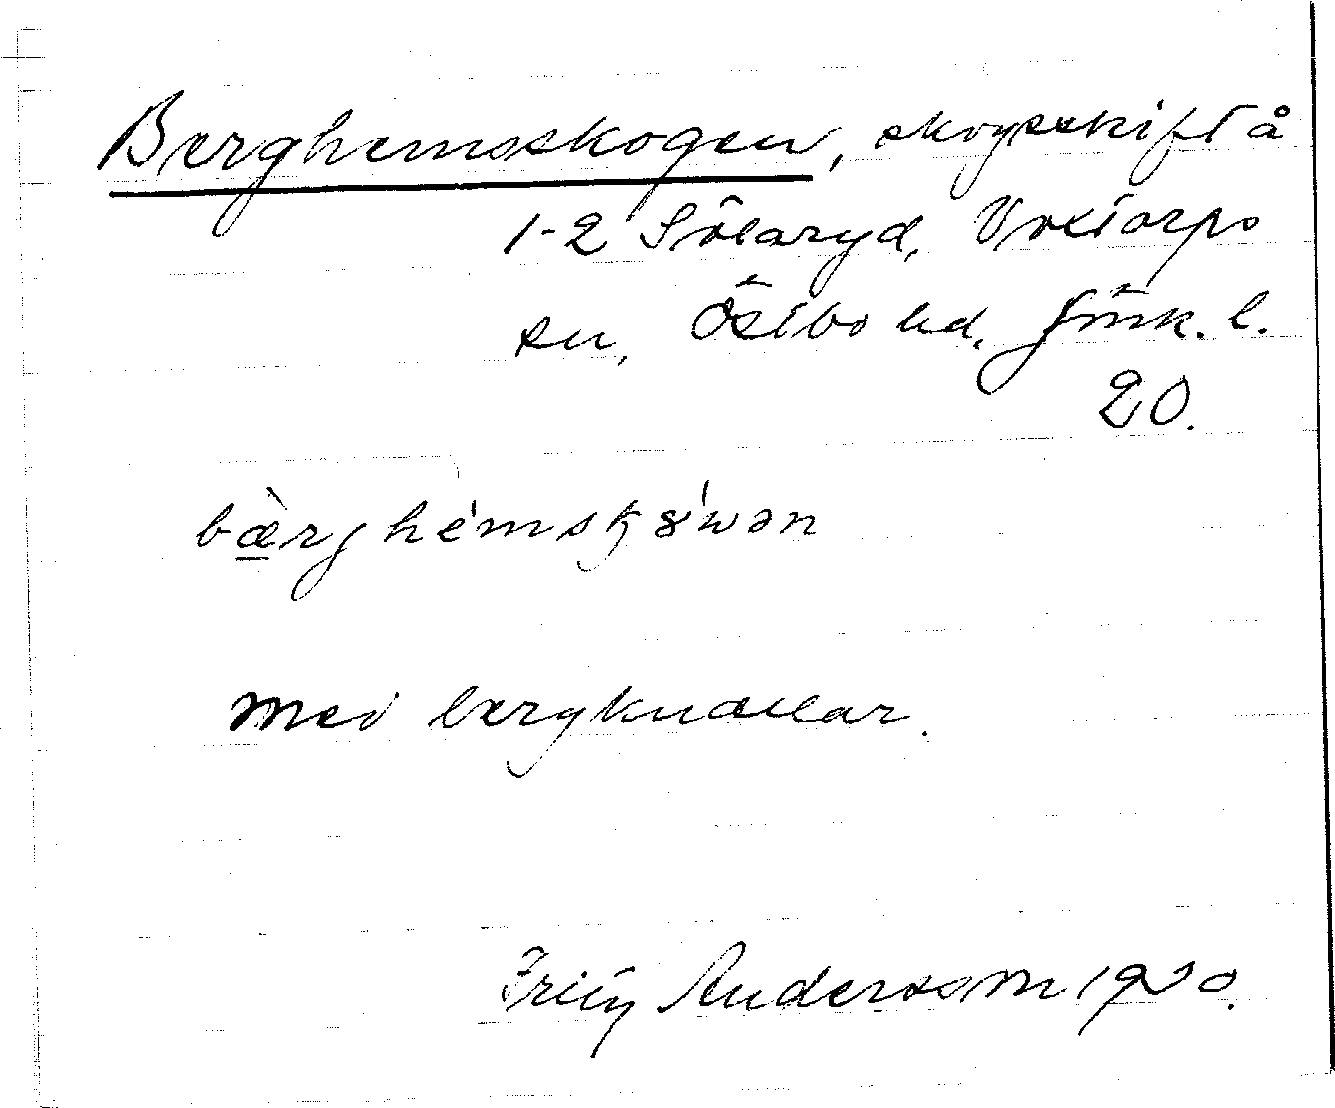 Berghemsskogen, skogsskift å
1-2 Sölaryd, Voxtorps
sn, Östbo hd, Jönk. l.
20.
bæ̀rghémskɤ́wən
med bergknallar.
Fritz Andersson 1920.